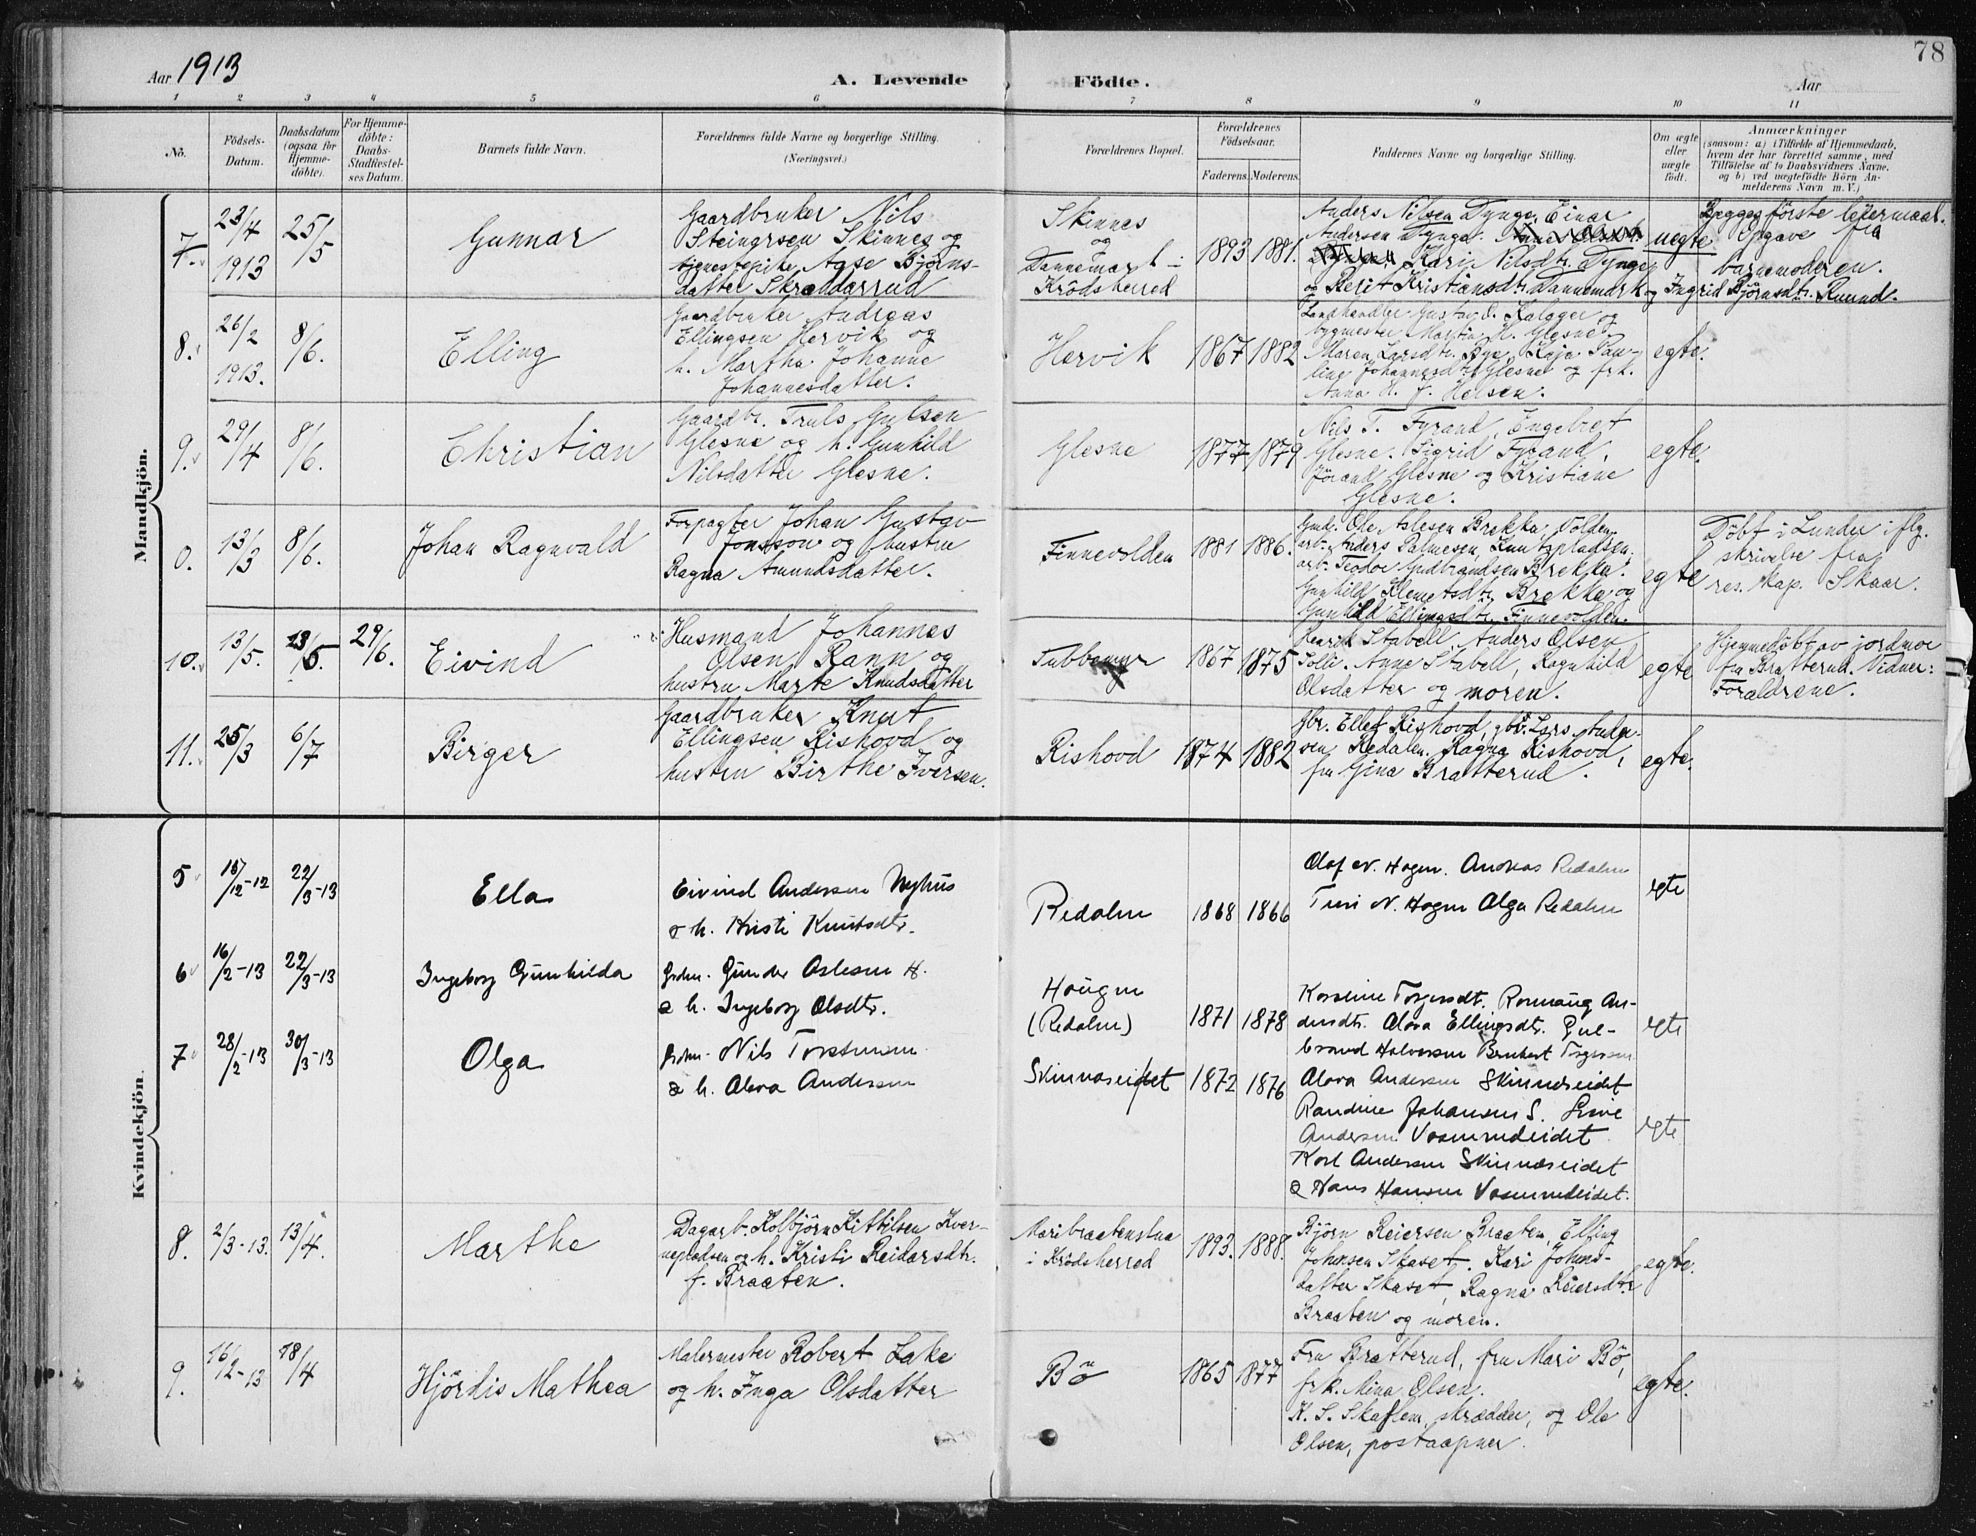 78
Aar 1913
A. Levende Födte.
Aar
1 2 3 4 5 6 7 8 9 10 11
No.
Födsels-Datum.
Daabsdatum (ogsaa for Hjemme-döbte).
For Hjemme-döbte: Daabs-Stadfæstel-ses Datum.
Barnets fulde Navn.
Forældrenes fulde Navne og borgerlige Stilling.
(Næringsvei.)
Forældrenes Bopæl.
Forældrenes Födselsaar.
Faderens. Moderens.
Faddernes Navne og borgerlige Stilling.
Om ægte eller uægte födt.
Anmærkninger
(saasom: a) i Tilfælde af Hjemmedaab, hvem der har forrettet samme, med Tilföielse af to Daabsvidners Navne, og b) ved uægtefödte Börn An-melderens Navn m. V.)
Mandkjön.
7. 23/4 1913 25/5 Gunnar
Gaardbruker Nils
Steingrsen Skinnes og
tjenestepike Aase Björns-
datter Skrædderrud
Skinnes
og
Dannemark i
Krödsherred
1893 1881.
Anders Nilsen Dynge, Einar
Andersen Dynge.
Kari Nilsdtr. Dynge
og Berit Kristiansdtr. Dannemark og Ingrid Björnsdtr. Ruud.
uegte
Begges förste leiermaal.
Opgave fra
barnemoderen.
8. 26/2 1913. 8/6. Elling
Gaardbruker Andreas
Ellingsen Hervik og
h. Martha Johanne
Johannesdatter.
Hervik 1867 1882
Landhandler Gustav O. Kalager og
bygmester Martin H. Glesne.
Maren Larsdtr. Bye, Kaja Pau-
line Johannesdtr. Glesne og frk.
Anna H. J. Helsen.
egte.
9. 29/4 8/6. Christian
Gaardbr. Truls Gulsen
Glesne og h. Gunhild
Nilsdatter Glesne.
Glesne 1877 1879
Nils T. Fyrand, Engebret
Glesne. Sigrid Fyrand,
Jörand Glesne og Kristiane
Glesne.
egte.
0. 13/3 8/6. Johan Ragnvald
Forpagter Johan Gustav
Jonsson og hustru
Ragna Amundsdatter.
Finnevolden 1881 1886.
Gmd. Ole Aslesen Brekke, Volden.
arb. Anders Palmesen,
arb. Teodor Gudbrandsen Brekke.
Gunhild Klemetsdtr. Brekke og
Gunhild Ellingsdtr. Finnevolden.
egte
Döbt i Lunder i flg.
skrivelse fra
res. kap. Skaar.
10. 13/5. 13/5. 29/6. Eivind
Husmand Johannes
Olsen Rann og
hustru Marte Knudsdatter
Tubbemyr 1867 1875
Henrik Stabell, Anders Olsen
Solli. Anne Stabell, Ragnhild
Olsdatter og moren.
egte
Hjemmedöbt av jordmor
fru Bratterud. Vidner:
Forældrene.
11. 25/3 6/7 Birger
Gaardbruker Knut
Ellingsen Rishovd og
hustru Birthe Iversen.
Rishovd 1874 1882
Gbr. Ellef Rishovd, gbr. Lars
Redalen. Ragna Rishovd,
fru Gina Bratterud.
egte.
Kvindekjön.
5 18/12-12 22/3-13 Ella
Eivind Andersen Nyhus
o h. Kristi Knutsdtr.
Redalen 1868 1866
Olaf N. Hagen. Andreas Redalen
Turi N. Hagen Olga Redalen
egte
6 16/2-13 22/3-13 Ingeborg Gunhilda
Grdm. Gunder Aslesen H.
o h. Ingeborg Olsdtr.
Haugen
(Redalen) 1871 1878
Karoline Torgersdt. Rønnaug An-
dersdtr. Olava Ellingsdtr. Gul-
brand Halvorsen Bernhart Torgersen
egte
7 28/2-13 30/3-13 Olga
Grdm. Nils Torstensen
o h. Olava Andersen
Skinnaseidet 1872 1876
Olava Andersen Skinnæseidet
Randine Johansen S. Line
Andersen Vasunndeidet
Karl Andersen Skinnæseidet
o Hans Hansen Vasunndeidet.
egte
8. 2/3-13. 13/4. Marthe
Dagarb. Kolbjörn Kittilsen Kver-
nepladsen og h. Kristi Reidarsdtr.
f. Braaten.
Maribraatenstua
i Krödsherred 1893. 1888.
Björn Reiersen Braaten, Elling
Johnsen Skaset. Kari Johns-
datter Skaset, Ragna Reiersdtr
Braaten og moren.
egte.
9. 16/2-13 18/4 Hjördis Mathea
Malermester Robert Lake
og h. Inga Olsdatter
Bö 1865 1877
Fru Bratterud, fru Mari Bö,
frk. Mina Olsen.
K. S. Skaflem, skrædder, og Ole
Olsen, postaapner.
egte.